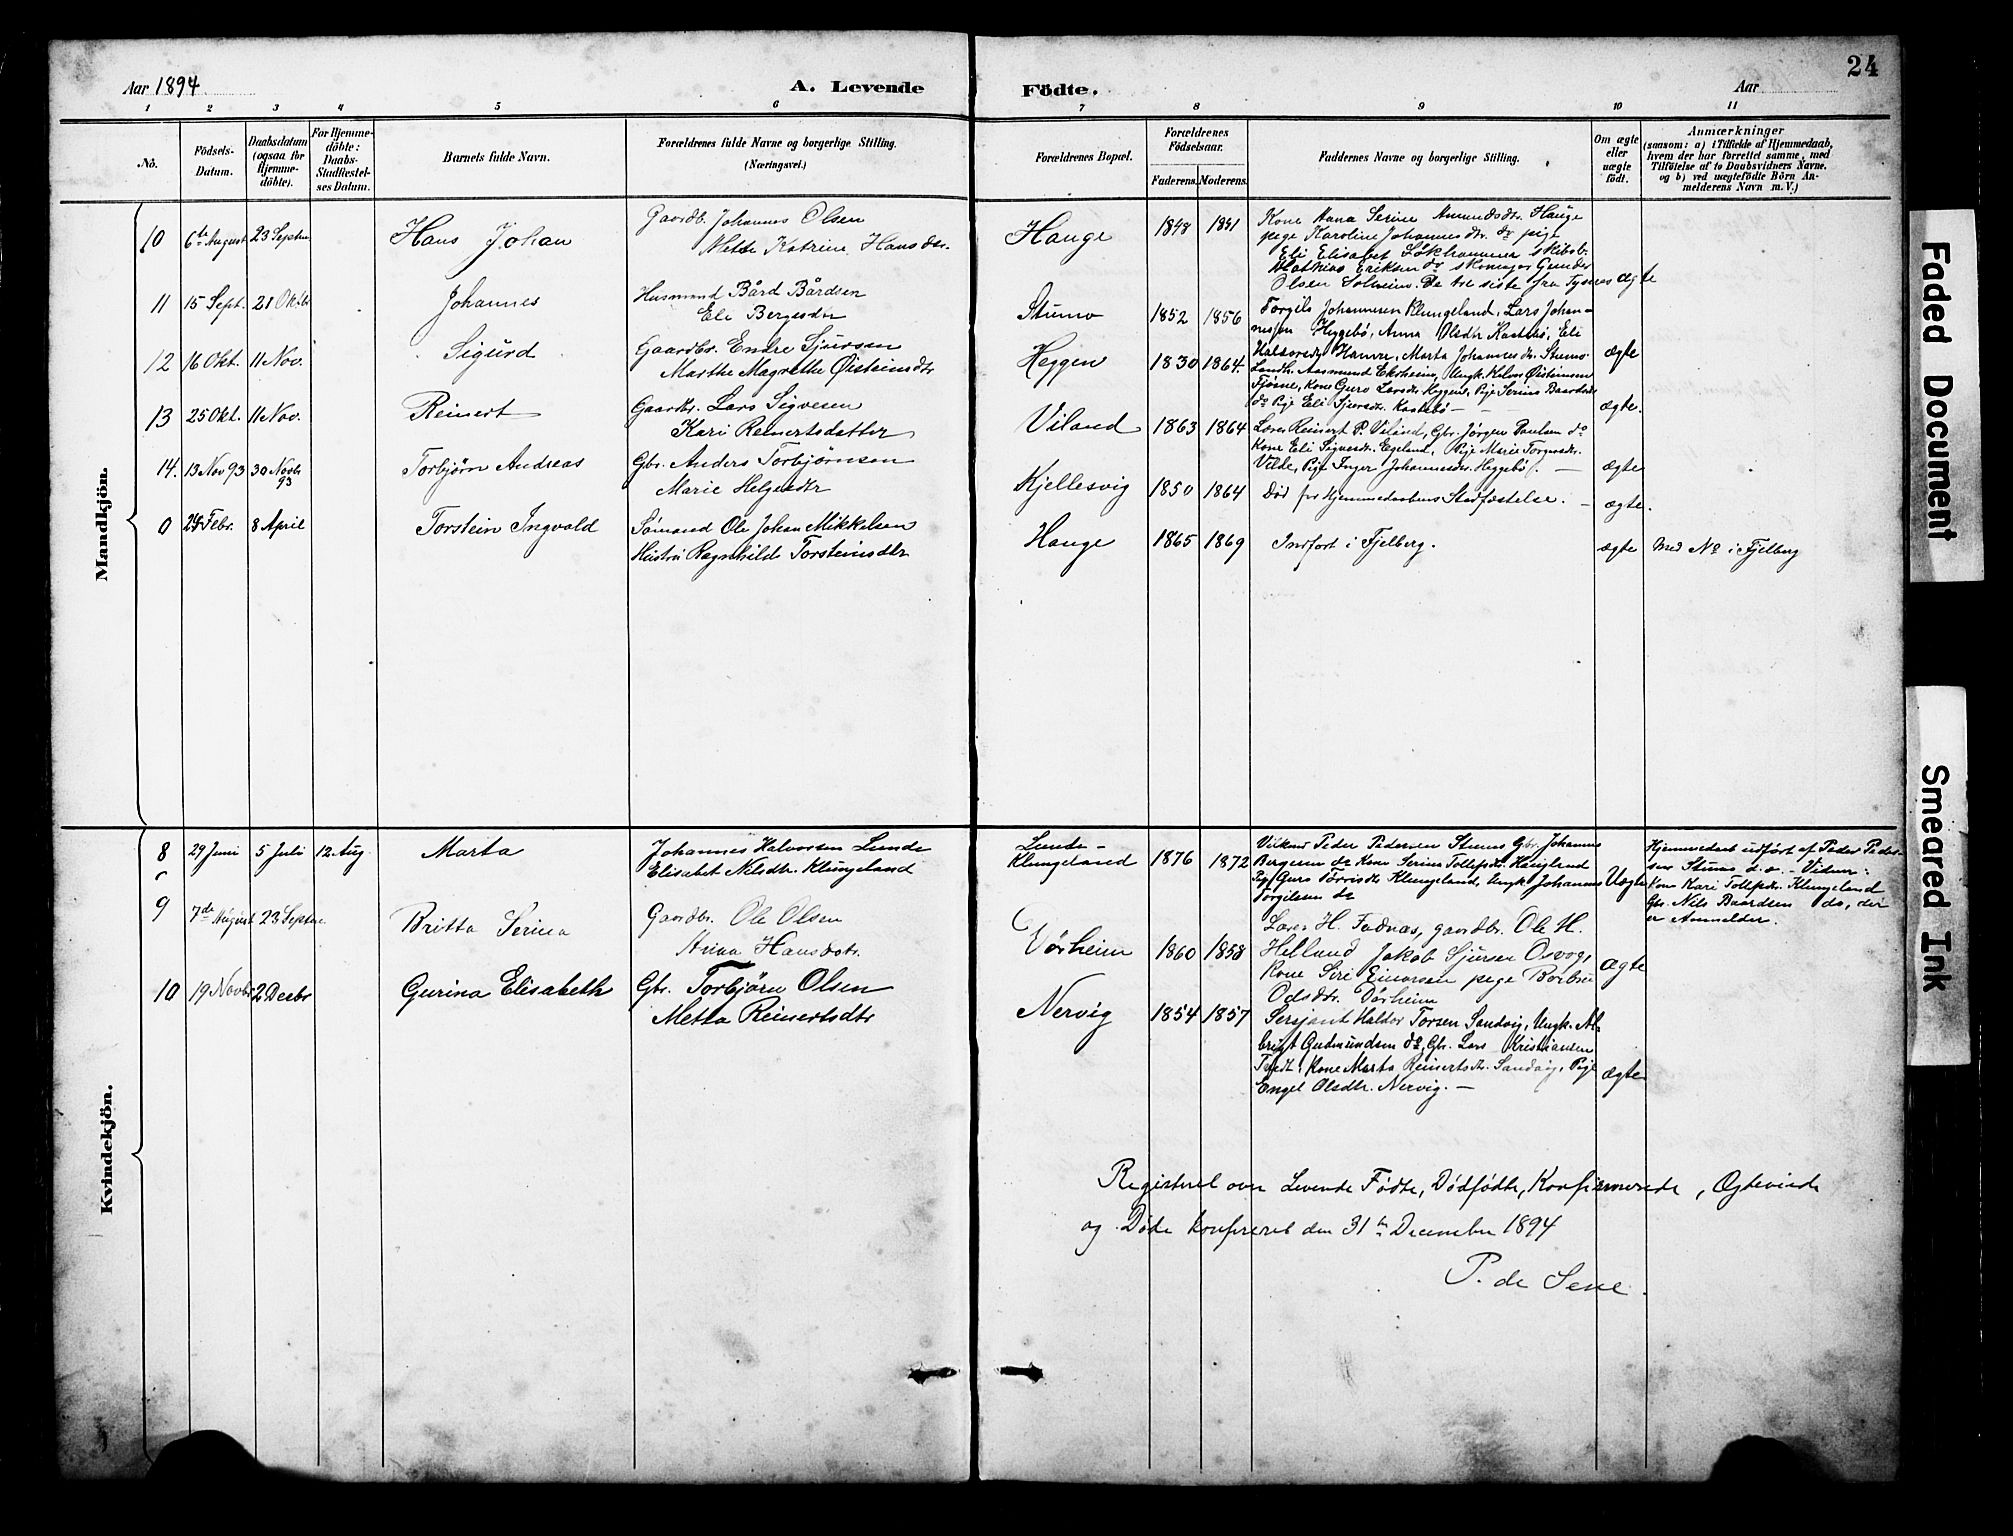 24
Aar 1894
A. Levende Födte.
Aar
1 2 3 4 5 6 7 8 9 10 11
No.
Födsels-Datum.
Daabsdatum (ogsaa for Hjemme-döbte).
For Hjemme-döbte: Daabs-Stadfæstel-ses Datum.
Barnets fulde Navn.
Forældrenes fulde Navne og borgerlige Stilling. (Næringsvei.)
Forældrenes Bopæl.
Forældrenes Födselsaar.
Faderens. Moderens.
Faddernes Navne og borgerlige Stilling.
Om ægte eller uægte födt.
Anmærkninger
(saasom: a) i Tilfælde af Hjemmedaab,
hvem der har forrettet samme, med
Tilföielse af to Daabsvidners Navne.
og b) ved uægtefödte Börn An-
melderens Navn m.V.)
Mandkjön.
10 6te August 23 Septm Hans Johan
Gaardb. Johannes Olsen
Mette Katrine Hansdtr.
Hauge 1848 1851
Kone Anna Serine Amundsdtr. Hauge
pege Karoline Johannesdtr. do pige
Eli Elisabet Løkhammer skibsb.
Mathias Eriksen do skomager Gunder
Olsen Solheim. De tre siste fra Tysnes ægte
11 15 Sept. 21 Oktbr Johannes
Husmand Bård Bårdsen
Eli Bergesdtr
Stumo 1852 1856
Torgils Johannesen Klungeland, Lars Johan-
nessen Heggebö, Anna Olsdtr Kaldebö, Eli
Halvorsdtr Hamre, Marta Johannesdtr. Stumo
ægte
12 16 Okt. 11 Nov. Sigurd
Gaardbr. Endre Sjursen
Marthe Magrethe Øisteinsdtr
Heggen 1830 1864.
Landh. Aasmund Ekrheim, Ungk. Øisteinsen
Fjösne, Kone Guro Larsdtr Heggen, Pige Serina Baardsdtr
do Pige Eli Sjursdtr. Kaldebö —
ægte.
13 25 Okt. 11 Nov. Reinert
Gaardbr. Lars Sigvesen
Kari Reinertsdatter
Viland 1863 1864
Lærer Reinert P. Viland, Gbr. Jørgen Paulsen do
Kone Eli Sigvesdtr. Egeland, Pige Marie Torgersdtr.
Velde, Pige Inger Johannesdtr. Heggebö. —
ægte
14. 13 Nov 93 30 Novbr 93 Torbjörn Andreas
Gbr. Anders Torbjörnsen
Marie Helgesdtr
Kjellesvig 1850 1864 Död før Hjemmedaabens Stadfæstelse. — ægte.
0 24 Febr. 8 April Torstein Ingvald
Sömand Ole Johan Mikkelsen
Hustru Ragnhilde Torsteinsdtr
Hauge 1865 1869 Indført i Fjelberg. ægte Med No i Fjelberg
Kvindekjön.
8 29 Juni 5 Juli 12 Aug. Marta
Johannes Halvorsen Lunde
Elisabet Nilsdtr. Klungeland
Lunde -
Klungeland 1876 1872
Peder Pedersen Stumo Gbr. Johannes
Bergesen do Kone Serina Tollefsdtr. Haugland
Pige Guro Torrisdtr Klungeland, Ungk. Johannes
Torgilsen do
Uægte
Hjemmedøbt udført af Peder Peder-
sen Stumo d.æ. - Vidner:
Kone Kari Tollefsdtr. Klungeland
Gbr. Nils Baardsen do, der
er Anmelder.
9 7de August 23 Septm Britta Serina
Gaardbr. Ole Olsen
Anna Hansdatr.
Vörheim 1860 1858
Lærer H. Fadnæs, gaardbr. Ole H.
Helland Jakob Sjursen Osvog,
Kone Siri Einarsen pege Barbru
Odsdtr. Vörheim
ægte
10 19 Novbr 2 Decbr Gurina Elisabeth
Gbr. Torbjörn Olsen
Metta Reinertsdtr
Nervig 1854 1857
Sersjant Haldor Torsen Sandvig, Ungk. Al-
brigt Gudmundsen do, Gbr. Lars Kristiansen
Tvedt, Kone Marta Reinertsdtr. Sandvig, Pige
Engel Olsdtr. Nervig. —
ægte
Registeret over Levende Fødte, Dødfødte, Konfirmerede, Ægteviede
og Døde konfereret den 31te December 1894
P. de Seve.
Faded Document
Smeared Ink